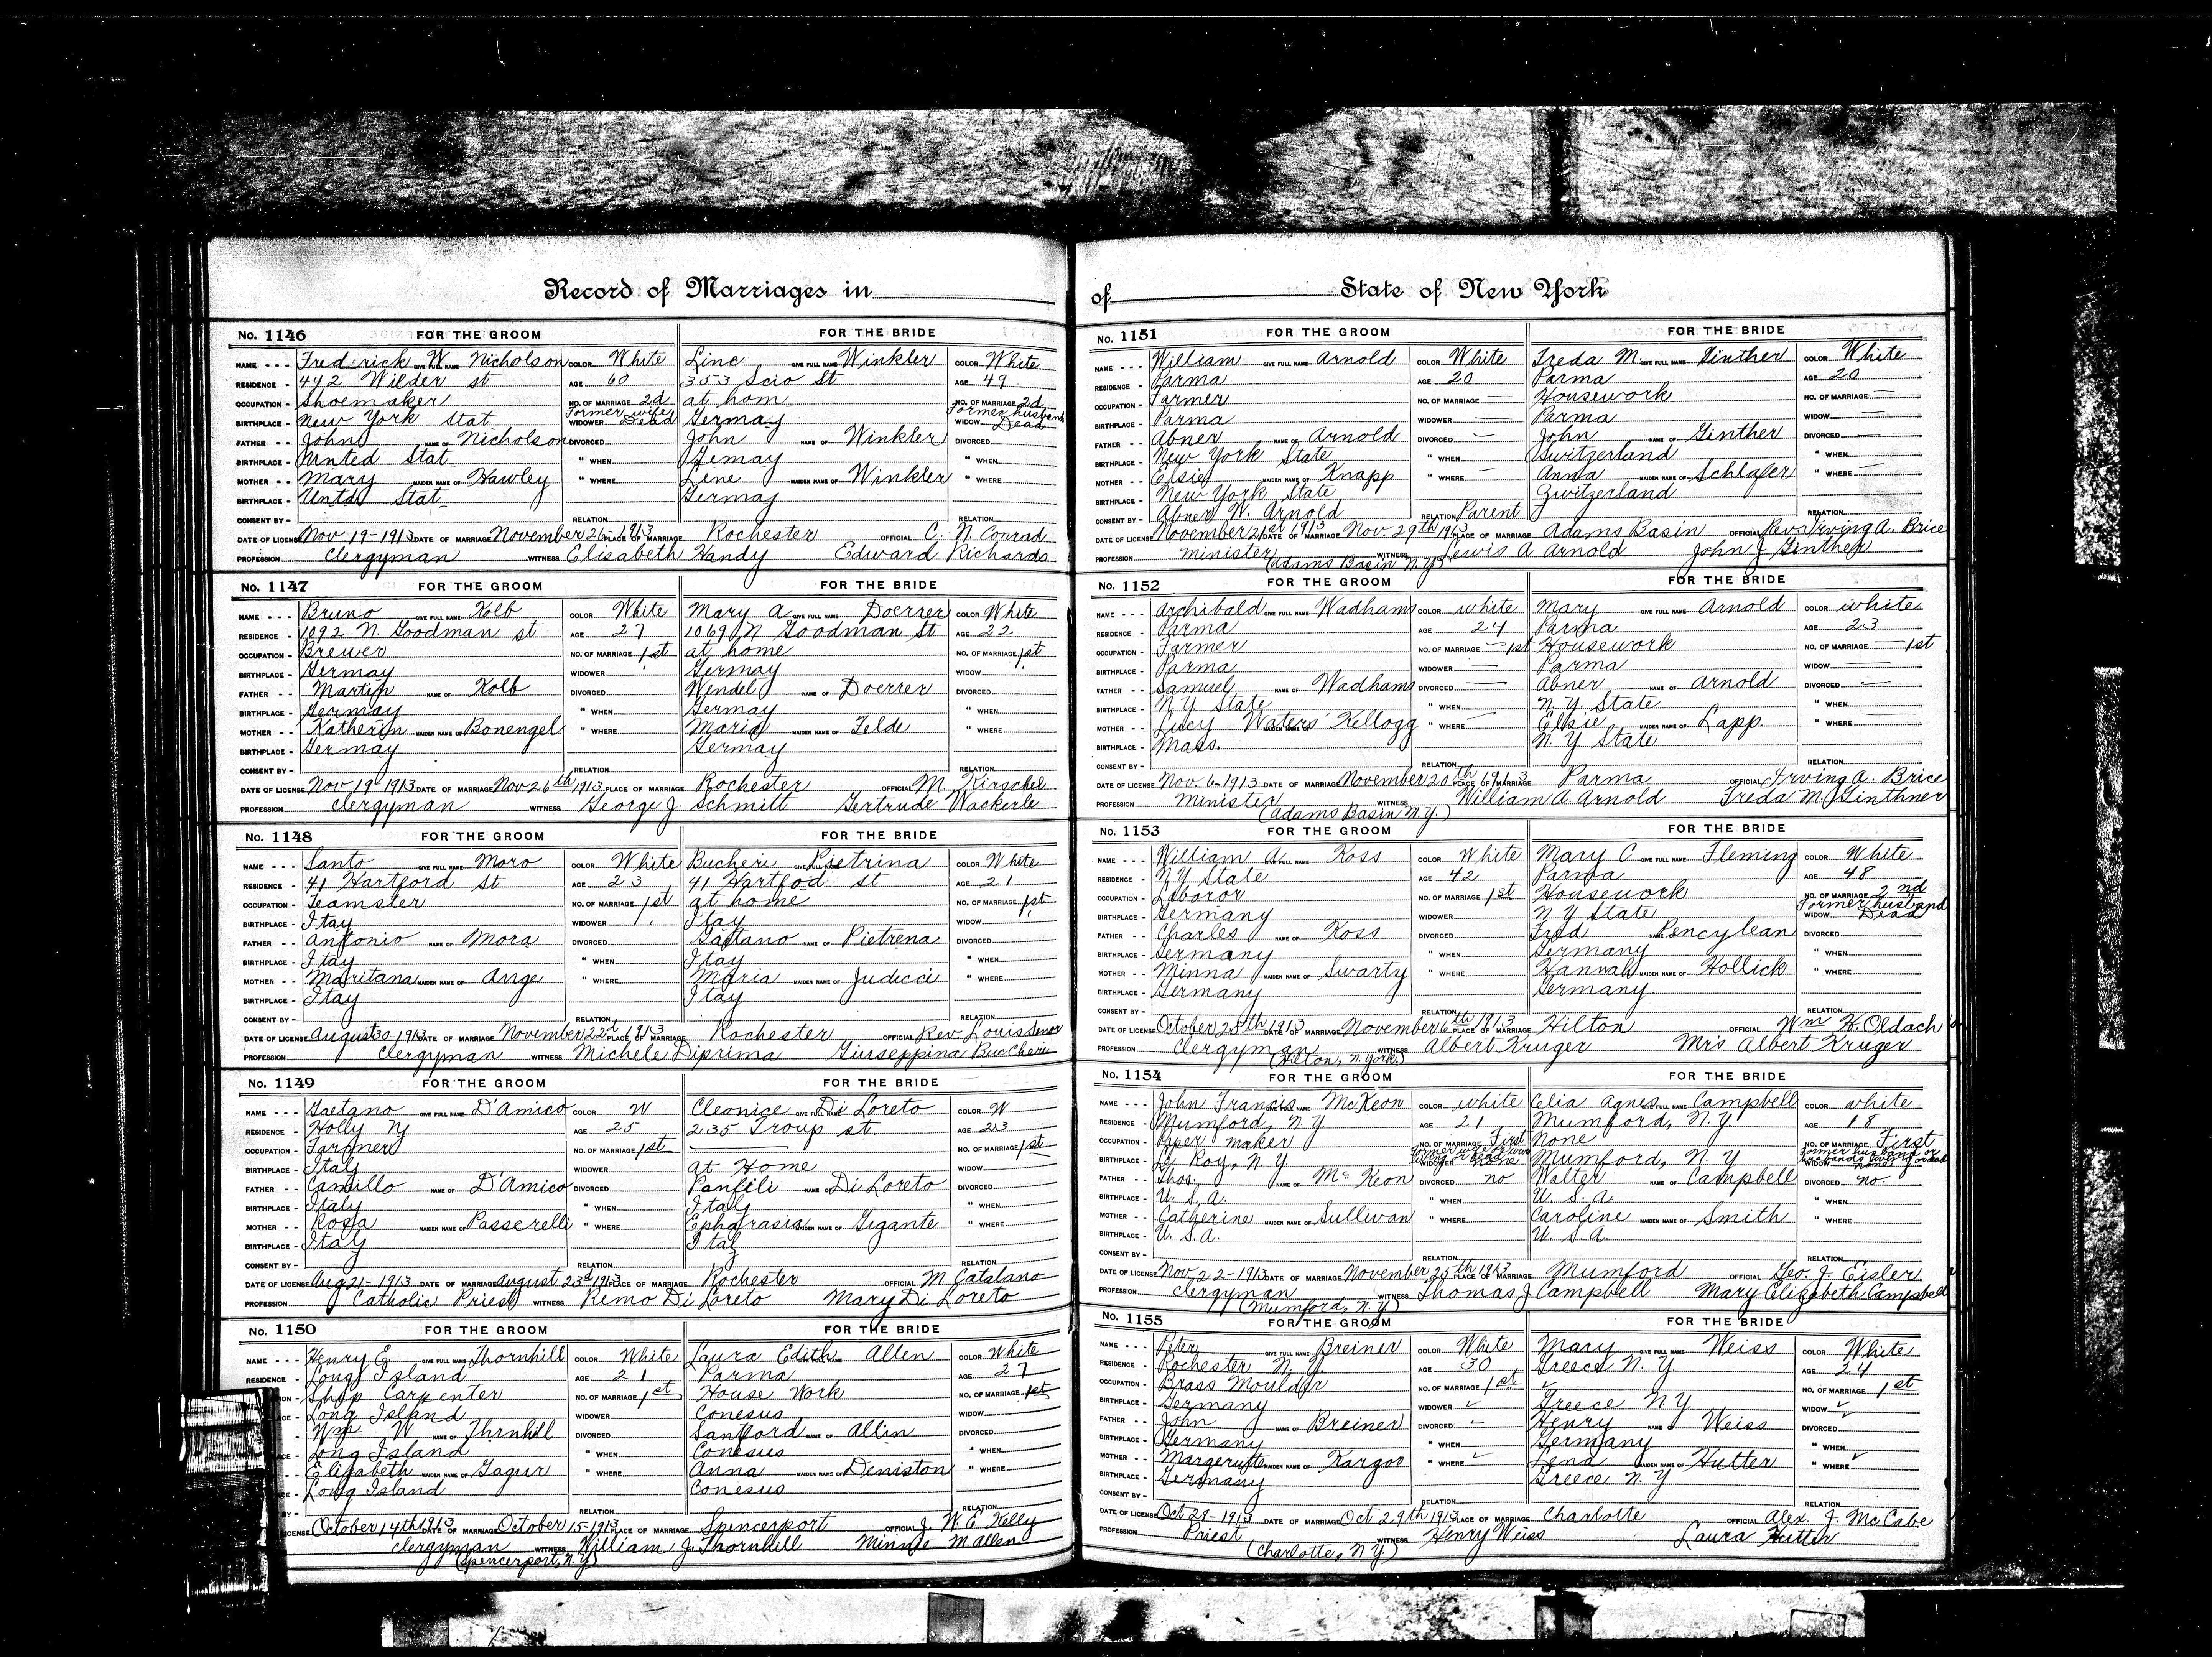 Record of Marriages in
No. 1146 FOR THE GROOM FOR THE BRIDE
NAME - - - Fredrick W. GIVE FULL NAME Nicholson COLOR White Line GIVE FULL NAME Winkler COLOR White
RESIDENCE - 442 Wilder st AGE 60 353 Scio St AGE 49
OCCUPATION - Shoemaker NO. OF MARRIAGE 2d at hom NO. OF MARRIAGE 2d
BIRTHPLACE - New York Stat Former wife WIDOWER Dead Germay Former husband WIDOW Dead
FATHER - - John NAME OF Nicholson DIVORCED John NAME OF Winkler DIVORCED
BIRTHPLACE - Unted Stat " WHEN Gemay " WHEN
MOTHER - - Mary MAIDEN NAME OF Hawley " WHERE Line MAIDEN NAME OF Winkler " WHERE
BIRTHPLACE - Untd Stat Germay
CONSENT BY - RELATION RELATION
DATE OF LICENSE Nov 19-1913 DATE OF MARRIAGE November 26-1913 PLACE OF MARRIAGE Rochester OFFICIAL C. N. Conrad
PROFESSION Clergyman WITNESS Elisabeth Handy Edward Richards
No. 1147 FOR THE GROOM FOR THE BRIDE
NAME - - - Bruno GIVE FULL NAME Kolb COLOR White Mary A GIVE FULL NAME Doerrer COLOR White
RESIDENCE - 1092 N. Goodman st AGE 27 1069 N Goodman St AGE 22
OCCUPATION - Brewer NO. OF MARRIAGE 1st at home NO. OF MARRIAGE 1st
BIRTHPLACE - Germay WIDOWER Germay WIDOW
FATHER - - Martin NAME OF Kolb DIVORCED Wendel NAME OF Doerrer DIVORCED
BIRTHPLACE - Germay " WHEN Germay " WHEN
MOTHER - - Katherin MAIDEN NAME OF Bonengel " WHERE Maria MAIDEN NAME OF Felde " WHERE
BIRTHPLACE - Germay Germay
CONSENT BY - RELATION RELATION
DATE OF LICENSE Nov 19-1913 DATE OF MARRIAGE Nov 26th 1913 PLACE OF MARRIAGE Rochester OFFICIAL M Kirschel
PROFESSION Clergyman WITNESS George J Schmitt Gertrude Wackerle
No. 1148 FOR THE GROOM FOR THE BRIDE
NAME - - - Santo GIVE FULL NAME Moro COLOR White Bucheri GIVE FULL NAME Pietrina COLOR White
RESIDENCE - 41 Hartford St AGE 23 41 Hartfod st AGE 21
OCCUPATION - Teamster NO. OF MARRIAGE 1st at home NO. OF MARRIAGE 1st
BIRTHPLACE - Itay WIDOWER Itay WIDOW
FATHER - - Antonio NAME OF Mora DIVORCED Gaetano NAME OF Pietrena DIVORCED
BIRTHPLACE - Itay " WHEN Itay " WHEN
MOTHER - - Maritana MAIDEN NAME OF Ange " WHERE Maria MAIDEN NAME OF Judicci " WHERE
BIRTHPLACE - Itay Itay
CONSENT BY - RELATION RELATION
DATE OF LICENSE August 30-1913 DATE OF MARRIAGE November 22d 1913 PLACE OF MARRIAGE Rochester OFFICIAL Rev. Louis
PROFESSION Clergyman WITNESS Michele Diprima Giuseppina Buccheri
No. 1149 FOR THE GROOM FOR THE BRIDE
NAME - - - Gaetano GIVE FULL NAME D'Amico COLOR W Cleonice GIVE FULL NAME Di Loreto COLOR W
RESIDENCE - Holly NY AGE 25 235 Troup st. AGE 23
OCCUPATION - Farmer NO. OF MARRIAGE 1st NO. OF MARRIAGE 1st
BIRTHPLACE - Italy WIDOWER at Home WIDOW
FATHER - - Camillo NAME OF D'Amico DIVORCED Panfili NAME OF Di Loreto DIVORCED
BIRTHPLACE - Italy " WHEN Italy " WHEN
MOTHER - - Rosa MAIDEN NAME OF Passerelli " WHERE Ephafrasia MAIDEN NAME OF Gigante " WHERE
BIRTHPLACE - Itay Italy
CONSENT BY - RELATION RELATION
DATE OF LICENSE Aug 21-1913 DATE OF MARRIAGE August 23d 1913 PLACE OF MARRIAGE Rochester OFFICIAL M Catalano
PROFESSION Catholic Priest WITNESS Remo Di Loreto Mary Di Loreto
No. 1150 FOR THE GROOM FOR THE BRIDE
NAME - - - Henry E. GIVE FULL NAME Thornhill COLOR White Laura Edith GIVE FULL NAME Allen COLOR White
RESIDENCE - Long Island AGE 21 Parma AGE 27
Ship Carpenter NO. OF MARRIAGE 1st House Work NO. OF MARRIAGE 1st
Long Island WIDOWER Conesus WIDOW
Wm W NAME OF Thrnhill DIVORCED Santford NAME OF Allin DIVORCED
Long Island " WHEN Conesus " WHEN
Elizabeth MAIDEN NAME OF Gagur " WHERE Anna MAIDEN NAME OF Deniston " WHERE
Long Island Conesus
BY - RELATION RELATION
LICENSE October 14th 1913 DATE OF MARRIAGE October 15-1913 PLACE OF MARRIAGE Spencerport OFFICIAL J. W. E. Kelly
Clergyman WITNESS William J. Thornhill Minnie M Allen
(Spencerport, N.Y)
of State of New York
No. 1151 FOR THE GROOM FOR THE BRIDE
NAME - - - William GIVE FULL NAME Arnold COLOR White Freda M. GIVE FULL NAME Ginther COLOR White
RESIDENCE - Parma AGE 20 Parma AGE 20
OCCUPATION - Farmer NO. OF MARRIAGE — Housework NO. OF MARRIAGE —
BIRTHPLACE - Parma WIDOWER — Parma WIDOW —
FATHER - - Abner NAME OF Arnold DIVORCED — John NAME OF Ginther DIVORCED —
BIRTHPLACE - New York State " WHEN Switzerland " WHEN
MOTHER - - Elsie MAIDEN NAME OF Knapp " WHERE — Anna MAIDEN NAME OF Schlafer " WHERE —
BIRTHPLACE - New York State Zwitzerland
CONSENT BY - Abner W. Arnold RELATION Parent RELATION
DATE OF LICENSE November 21st 1913 DATE OF MARRIAGE Nov. 29th 1913 PLACE OF MARRIAGE Adams Basin OFFICIAL Rev. Irving A. Brice
PROFESSION Minister WITNESS Lewis A Arnold John J Ginther
(Adams Basin N.Y)
No. 1152 FOR THE GROOM FOR THE BRIDE
NAME - - - Archibald GIVE FULL NAME Wadhams COLOR white Mary GIVE FULL NAME Arnold COLOR white
RESIDENCE - Parma AGE 24 Parma AGE 23
OCCUPATION - Farmer NO. OF MARRIAGE — 1st Housework NO. OF MARRIAGE — 1st
BIRTHPLACE - Parma WIDOWER — Parma WIDOW —
FATHER - - Samuel NAME OF Wadhams DIVORCED — Abner NAME OF Arnold DIVORCED —
BIRTHPLACE - N Y State " WHEN N. Y State " WHEN
MOTHER - - Lucy Waters Kellogg MAIDEN NAME OF " WHERE — Elsie MAIDEN NAME OF Lapp " WHERE —
BIRTHPLACE - Mass. N. Y State
CONSENT BY - RELATION RELATION
DATE OF LICENSE Nov. 6-1913 DATE OF MARRIAGE November 20th 1913 PLACE OF MARRIAGE Parma OFFICIAL Irving A. Brice
PROFESSION Minister WITNESS William A Arnold Freda M. Ginthner
(Adams Basin N.Y.)
No. 1153 FOR THE GROOM FOR THE BRIDE
NAME - - - William A. GIVE FULL NAME Koss COLOR White Mary C GIVE FULL NAME Fleming COLOR White
RESIDENCE - N Y State AGE 42 Parma AGE 48
OCCUPATION - Laboror NO. OF MARRIAGE 1st Housework NO. OF MARRIAGE 2nd
BIRTHPLACE - Germany WIDOWER N Y State Former husband WIDOW Dead
FATHER - - Charles NAME OF Koss DIVORCED Fred Pencylean DIVORCED
BIRTHPLACE - Germany " WHEN Germany " WHEN
MOTHER - - Minna MAIDEN NAME OF Swarty " WHERE Hannah MAIDEN NAME OF Hollick " WHERE
BIRTHPLACE - Germany Germany.
CONSENT BY - RELATION RELATION
DATE OF LICENSE October 28th 1913 DATE OF MARRIAGE November 6th 1913 PLACE OF MARRIAGE Hilton OFFICIAL Wm H. Oldach
PROFESSION Clergyman WITNESS Albert Kruger Mrs Albert Kruger
(Hilton, N. York.)
No. 1154 FOR THE GROOM FOR THE BRIDE
NAME - - - John Francis GIVE FULL NAME McKeon COLOR white Celia Agnes GIVE FULL NAME Campbell COLOR white
RESIDENCE - Mumford, N. Y AGE 21 Mumford, N. Y. AGE 18
OCCUPATION - Paper maker NO. OF MARRIAGE First None NO. OF MARRIAGE First
BIRTHPLACE - Le Roy, N. Y. Former wife or wives living or dead WIDOWER none Mumford, N. Y Former husband or husbands living or dead WIDOW none
FATHER - - Thos. NAME OF McKeon DIVORCED no Walter NAME OF Campbell DIVORCED no.
BIRTHPLACE - U. S. A. " WHEN U. S. A. " WHEN
MOTHER - - Catherine MAIDEN NAME OF Sullivan " WHERE Caroline MAIDEN NAME OF Smith " WHERE
BIRTHPLACE - U. S. A. U. S. A.
CONSENT BY - RELATION RELATION
DATE OF LICENSE Nov 22-1913 DATE OF MARRIAGE November 25th 1913 PLACE OF MARRIAGE Mumford OFFICIAL Geo. J. Eisler
PROFESSION Clergyman WITNESS Thomas J Campbell Mary Elizabeth Campbell
(Mumford, N.Y)
No. 1155 FOR THE GROOM FOR THE BRIDE
NAME - - - Peter GIVE FULL NAME Breiner COLOR White Mary GIVE FULL NAME Weiss COLOR White
RESIDENCE - Rochester N. Y. AGE 30 Greece N. Y AGE 24
OCCUPATION - Brass Moulder NO. OF MARRIAGE 1st NO. OF MARRIAGE 1st
BIRTHPLACE - Germany WIDOWER Greece N Y WIDOW
FATHER - - John NAME OF Breiner DIVORCED Henry NAME Weiss DIVORCED
BIRTHPLACE - Germany " WHEN Germany " WHEN
MOTHER - - Margerufte MAIDEN NAME OF Kargoo " WHERE Lena MAIDEN NAME OF Hutter " WHERE
BIRTHPLACE - Germany Greece N. Y
CONSENT BY - RELATION RELATION
DATE OF LICENSE Oct 29-1913 DATE OF MARRIAGE Oct 29th 1913 PLACE OF MARRIAGE Charlotte OFFICIAL Alex. J. McCabe
PROFESSION Priest WITNESS Henry Weiss Laura Hutter
(Charlotte, N Y.)